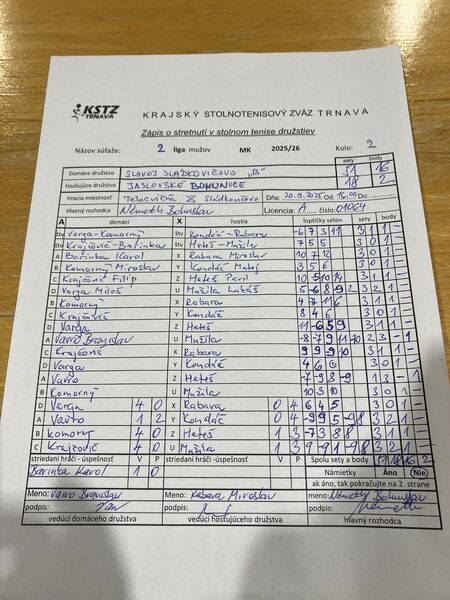 KSTZ
TRNAVA
KRAJSKÝ STOLNOTENISOVÝ ZVÄZ TRNAVA
Zápis o stretnutí v stolnom tenise družstiev
Názov súťaže: 2 liga mužov MK 2025/26 Kolo: 2
sety body
Domáce družstvo SLAVOJ SLÁDKOVIČOVO "B" 51 16
Hosťujúce družstvo JASLOVSKÉ BOHUNICE 18 2
Hracia miestnosť Telocvičňa ZŠ Sládkovičovo Dňa: 20.9.2025 Od 16:00 Do
Hlavný rozhodca Németh Bohuslav Licencia: A číslo: 01064
A domáci hostia loptičky setov sety body
štv Varga-Komorný štv Kondáč-Rabara -6 7 3 11 3 1 1 -
štv Krajčovič-Bařinka štv Heteš-Mužila 7 5 5 3 0 1 -
A Bařinka Karol X Rabara Miroslav 10 7 12 3 0 1 -
B Komorný Miroslav Y Kondáč Matej 3 5 6 3 0 1 -
C Krajčovič Filip Z Heteš Pavol 3 1 1 -
D Varga Miloš U Mužila Lukáš 3 2 1 -
B Komorný X Rabara 3 1 1 -
C Krajčovič Y Kondáč 8 4 6 3 0 1 -
D Varga Z Heteš 11 -6 5 9 3 1 1 -
A Vavro Branislav U Mužila -8 -7 9 11 -10 2 3 - 1
C Krajčovič X Rabara 3 1 1 -
D Varga Y Kondáč 4 6 0 3 0 1 -
A Vavro Z Heteš -7 -9 8 -9 1 3 - 1
B Komorný U Mužila 10 3 10 3 0 1 -
D Varga 4 0 X Rabara 0 4 6 4 5 3 0 1 -
A Vavro 1 2 Y Kondáč 0 4 3 2 1 -
B Komorný 4 0 Z Heteš 1 3 3 1 1 -
C Krajčovič 4 0 U Mužila 1 3 3 2 1 -
striedaní hráči - úspešnosť V P striedaní hráči - úspešnosť V P Spolu sety a body 51 18 16 2
Bařinka Karol 1 0 Námietky Áno Nie
ak áno, tak pokračujte na 2. strane
Meno: Vavro Branislav Meno: Rabara Miroslav Meno: Németh Bohuslav
podpis: podpis: podpis:
vedúci domáceho družstva vedúci hosťujúceho družstva hlavný rozhodca